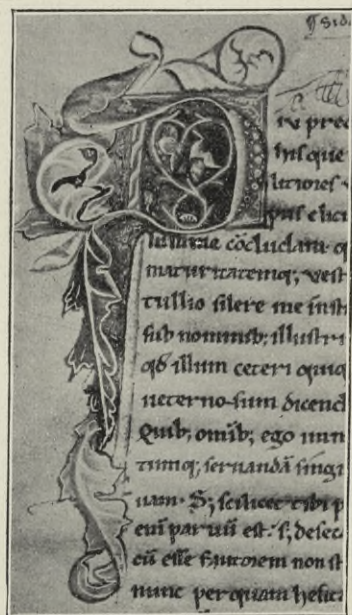 ¶ Sid
iu prec
his que
litiores v
pus elicu
lumine
maturitatemq; vest
tullio silere me inst
sub nominib; illustri
qd illum ceteri quiq
ueterno sum dicend
Quib; omib; ego
tumq; seruandā singu
uam. S; scilicet tibi p
eni parum est. s; defec
cū esse fautorem non st
nunc perquam hesita